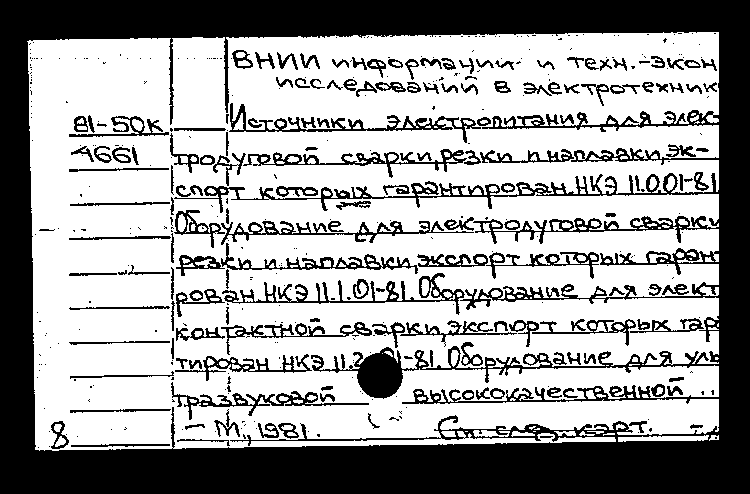 ВНИИ информации и техн.-экон
исследований в электротехник
81-50к Источники электропитания для элек-
4661 тродуговой сварки, резки и наплавки, эк-
спорт которых гарантирован. НКЭ 11.0.01-81
Оборудование для электродуговой сварки
резки и наплавки, экспорт которых гарант
рован. НКЭ 11.1.01-81. Оборудование для элект
контактной сварки, экспорт которых гара
тирован НКЭ 11.2.01-81. Оборудование для уль
тразвуковой высококачественной, ..
8 – М., 1981. См. след. карт.